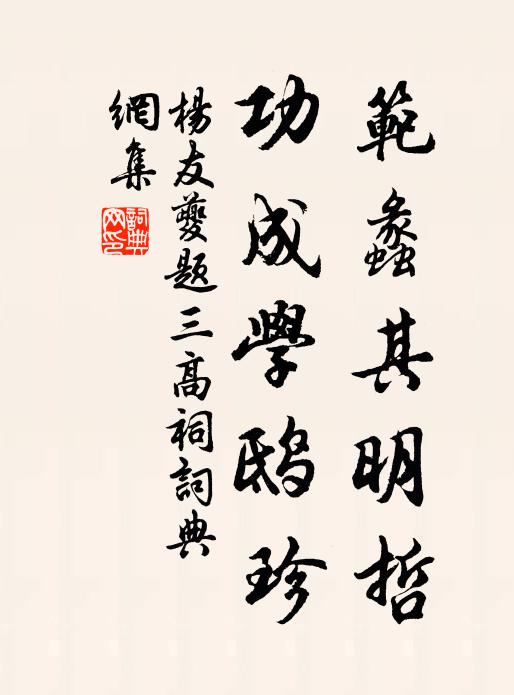 範蠡其明哲
功成學鴟珍
楊友夔題三高祠詞典
網集
詞典网印